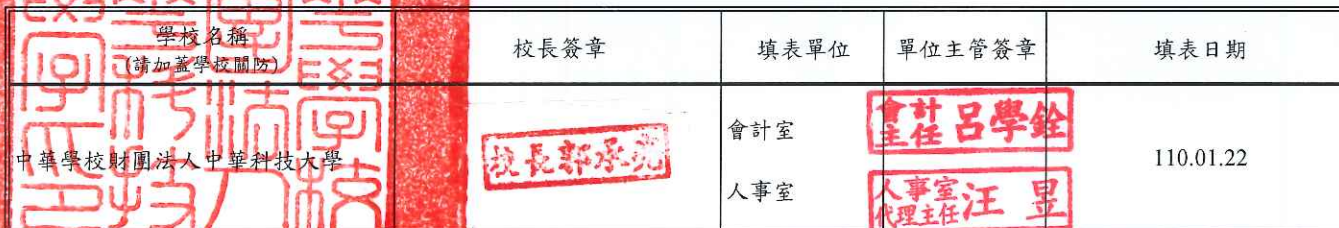 學校名稱
(請加蓋學校關防)
校長簽章
填表單位
單位主管簽章
填表日期
中華學校財團法人中華科技大學
校長郭承亮
會計室
會計主任 呂學銓
人事室
人事室代理主任 汪昱
110.01.22